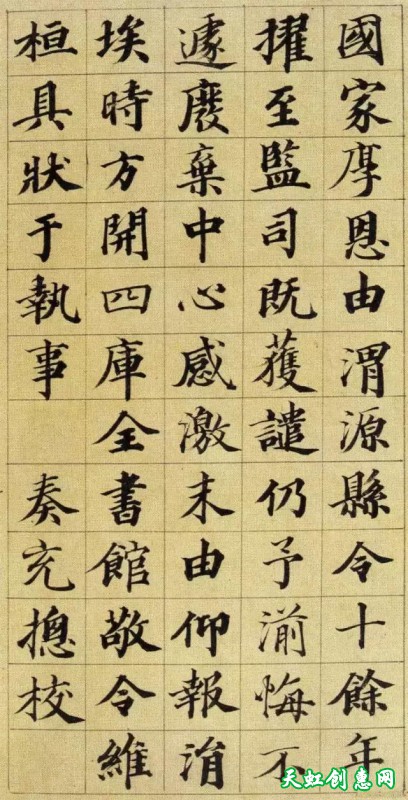 國家厚恩由渭源縣令十餘年
擢至監司既獲譴仍予湔悔不
遽廢棄中心感激末由仰報涓
埃時方開四庫全書館敬令維
桓具狀于執事 奏充摠校
天虹创惠网